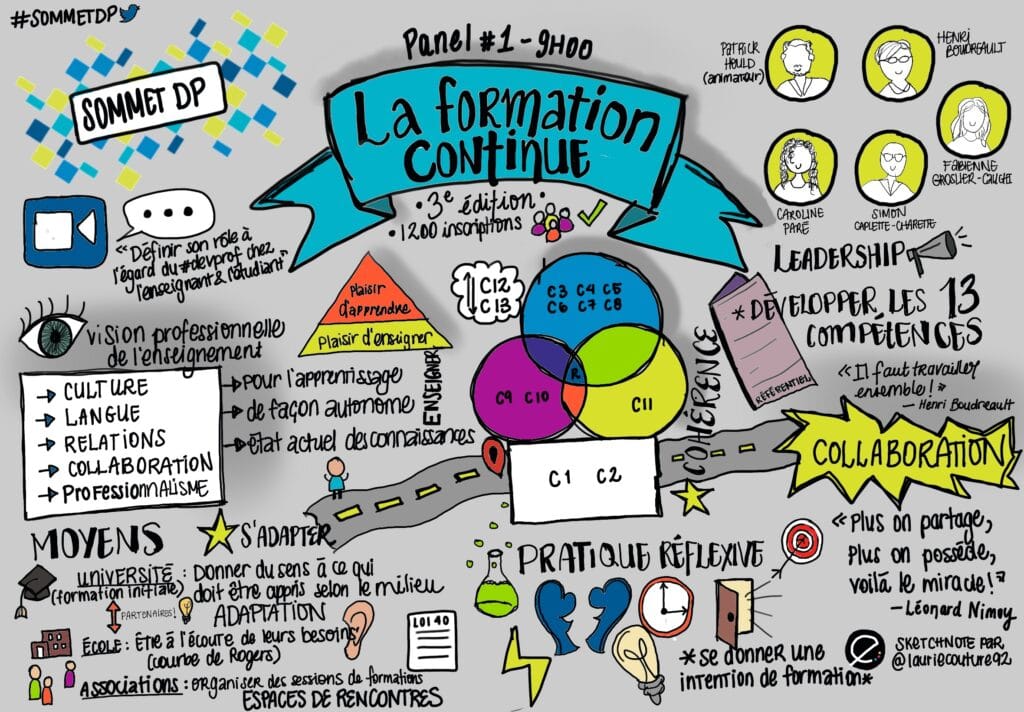 #SOMMETDP
SOMMET DP
PANEL #1 - 9H00
La formation
continue
• 3e édition •
• 1200 inscriptions
PATRICK
HOULD
(animateur)
HENRI
BOUDREAULT
FABIENNE
GROSLIER-CAUCHI
CAROLINE
PARÉ
SIMON
CAPLETTE-CHARETTE
« Définir son rôle à
l'égard du #devprof chez
l'enseignant & l'étudiant »
Vision professionnelle
de l'enseignement
CULTURE
LANGUE
RELATIONS
COLLABORATION
PROFESSIONNALISME
pour l'apprentissage
de façon autonome
État actuel des connaissances
Plaisir
d'apprendre
Plaisir d'enseigner
ENSEIGNER
C12
C13
C3 C4 C5
C6 C7 C8
C9 C10
R
C11
C1 C2
COHÉRENCE
RÉFÉRENTIEL
LEADERSHIP
* DÉVELOPPER LES 13
COMPÉTENCES
« Il faut travailler
ensemble ! »
— Henri Boudreault
COLLABORATION
« Plus on partage,
Plus on possède,
voilà le miracle ! »
— Léonard Nimoy
MOYENS
S'ADAPTER
UNIVERSITÉ : Donner du sens à ce qui
(formation initiale) doit être appris selon le milieu
PARTENAIRES!
ADAPTATION
ÉCOLE : Être à l'écoute de leurs besoins
(courbe de Rogers)
Associations : organiser des sessions de formations
ESPACES DE RENCONTRES
LOI 40
PRATIQUE RÉFLEXIVE
* se donner une
intention de formation *
SKETCHNOTE PAR
@lauriecouture92